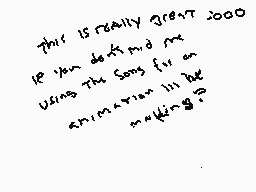 This is really great :ooo
if you don't mid me
using the song for an
animation i'll be
making?